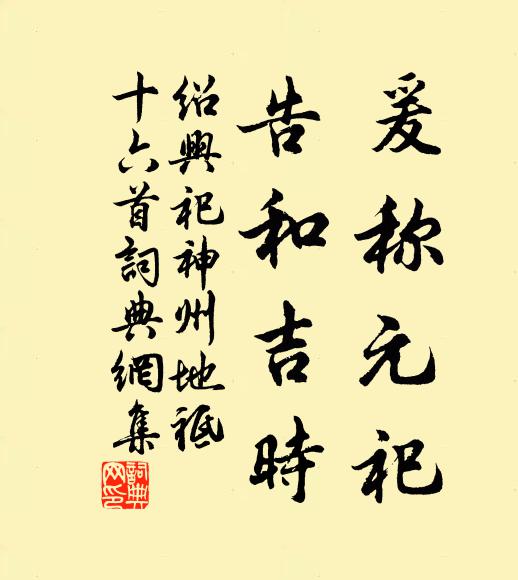 爰称元祀
告和吉時
紹興祀神州地祗
十六首詞典網集
詞典
網印